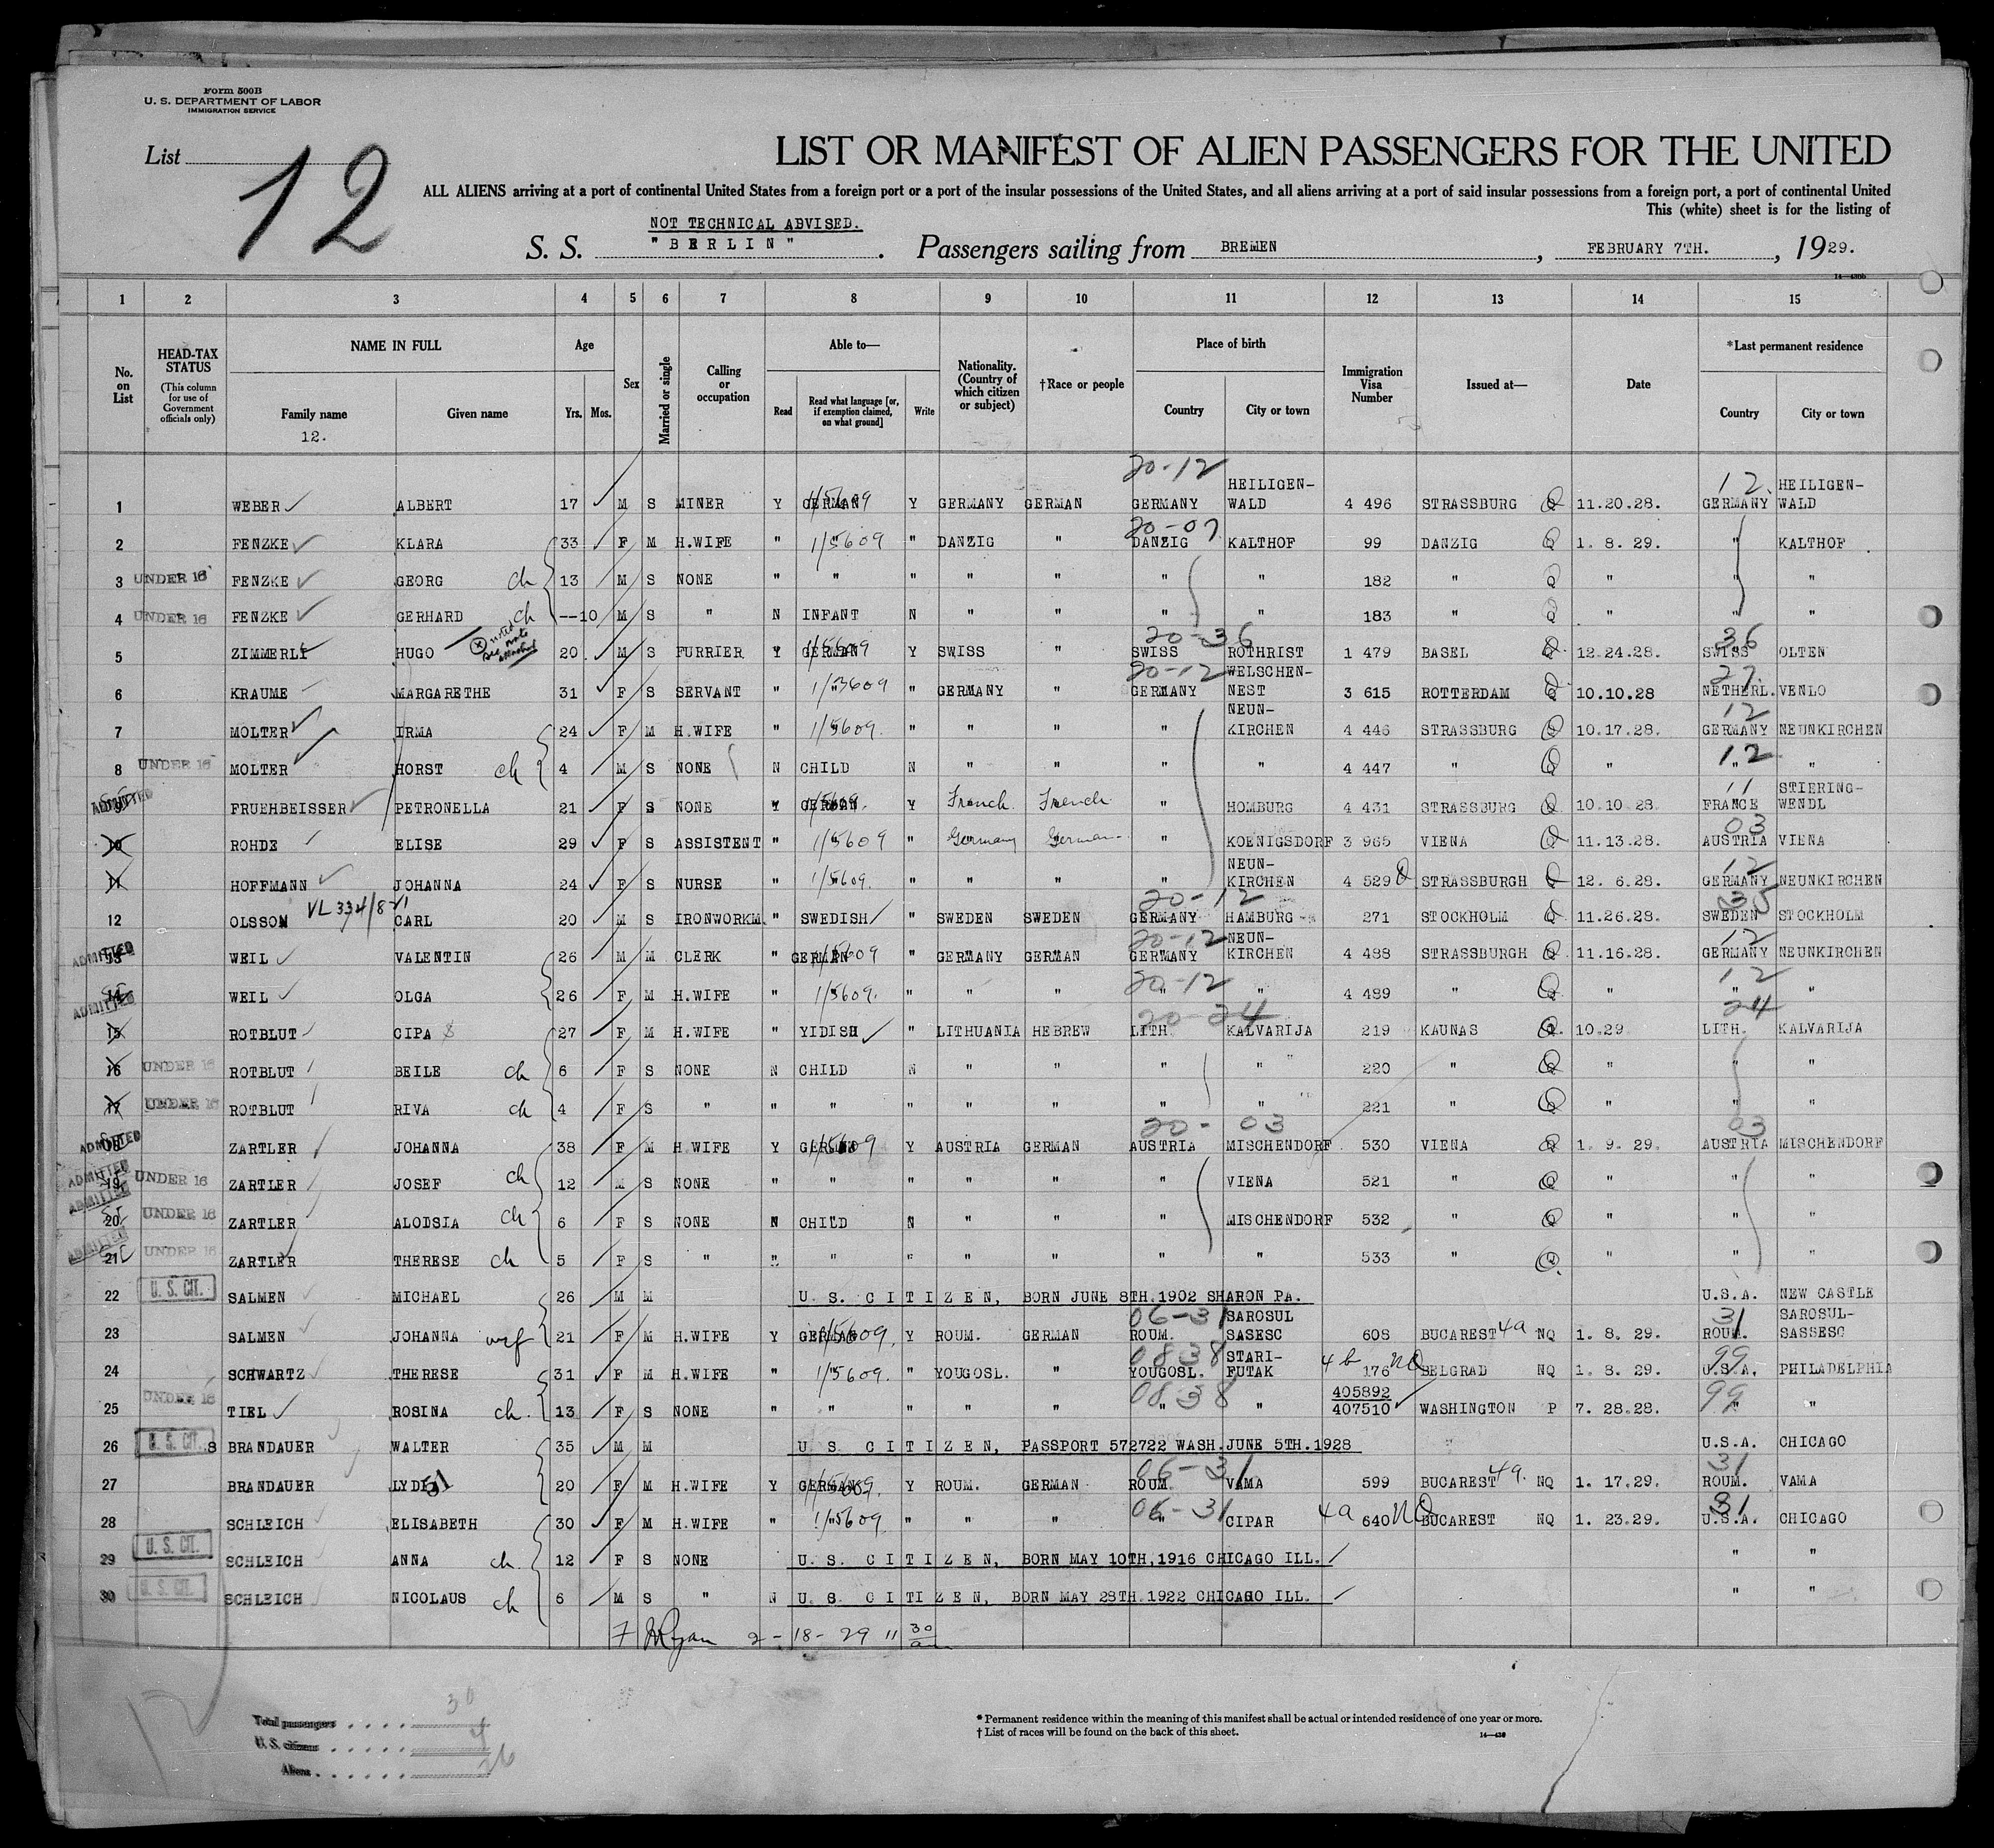 Form 500B
U. S. DEPARTMENT OF LABOR
IMMIGRATION SERVICE
List 12
LIST OR MANIFEST OF ALIEN PASSENGERS FOR THE UNITED
ALL ALIENS arriving at a port of continental United States from a foreign port or a port of the insular possessions of the United States, and all aliens arriving at a port of said insular possessions from a foreign port, a port of continental United
This (white) sheet is for the listing of
NOT TECHNICAL ABVISED.
S. S. "BERLIN". Passengers sailing from BREMEN, FEBRUARY 7TH., 1929.
1 2 3 4 5 6 7 8 9 10 11 12 13 14 15
No. on List
HEAD-TAX STATUS (This column for use of Government officials only)
NAME IN FULL Family name Given name
12.
Age Yrs. Mos.
Sex
Married or single
Calling or occupation
Able to— Read Read what language [or, if exemption claimed, on what ground] Write
Nationality. (Country of which citizen or subject)
†Race or people
Place of birth Country City or town
Immigration Visa Number
Issued at—
Date
*Last permanent residence Country City or town
20-12 12.
1 WEBER ALBERT 17 M S MINER Y GERMAN 1/5609 Y GERMANY GERMAN GERMANY HEILIGEN-WALD 4 496 STRASSBURG Q 11.20.28. GERMANY HEILIGEN-WALD
20-07
2 FENZKE KLARA 33 F M H.WIFE " " 1/5609 " DANZIG " DANZIG KALTHOF 99 DANZIG Q 1. 8. 29. " KALTHOF
3 UNDER 16 FENZKE GEORG ch 13 M S NONE " " " " " " " 182 " Q " " "
4 UNDER 16 FENZKE GERHARD ch --10 M S " N INFANT N " " " " 183 " Q " " "
20-36 36
5 ZIMMERLI HUGO 20 M S FURRIER Y GERMAN 1/5609 Y SWISS " SWISS ROTHRIST 1 479 BASEL Q 12.24.28. SWISS OLTEN
20-12 27.
6 KRAUME MARGARETHE 31 F S SERVANT " " 1/5609 " GERMANY " GERMANY WELSCHEN-NEST 3 615 ROTTERDAM Q 10.10.28 NETHERL. VENLO
12
7 MOLTER IRMA 24 F M H.WIFE " " 1/5609. " " " " NEUN-KIRCHEN 4 446 STRASSBURG Q 10.17.28. GERMANY NEUNKIRCHEN
8 UNDER 16 MOLTER HORST ch 4 M S NONE N CHILD N " " " " 4 447 " Q " " 12 "
11
9 ADMITTED FRUEHBEISSER PETRONELLA 21 F S NONE Y GERMAN 1/5609. Y French French " HOMBURG 4 431 STRASSBURG Q 10.10 28. FRANCE STIERING-WENDL
03
10 ROHDE ELISE 29 F S ASSISTENT " " 1/5609 " Germany German " KOENIGSDORF 3 965 VIENA Q 11.13.28. AUSTRIA VIENA
12
11 HOFFMANN JOHANNA 24 F S NURSE " " 1/5609. " " " " NEUN-KIRCHEN 4 529 Q STRASSBURGH Q 12. 6.28. GERMANY NEUNKIRCHEN
20-12 35
12 OLSSON CARL 20 M S IRONWORKM. " SWEDISH " SWEDEN SWEDEN GERMANY HAMBURG 271 STOCKHOLM Q 11.26.28. SWEDEN STOCKHOLM
20-12 12
13 ADMITTED WEIL VALENTIN 26 M M CLERK " GERMAN 1/5609 " GERMANY GERMAN GERMANY NEUN-KIRCHEN 4 488 STRASSBURGH Q 11.16.28. GERMANY NEUNKIRCHEN
20-12 12
14 ADMITTED WEIL OLGA 26 F M H.WIFE " " 1/5609. " " " " " 4 489 " Q " " "
20-24 24
15 ROTBLUT CIPA 27 F M H.WIFE " YIDISH " LITHUANIA HEBREW LITH. KALVARIJA 219 KAUNAS Q 10.29 LITH. KALVARIJA
16 UNDER 16 ROTBLUT BEILE ch 6 F S NONE N CHILD N " " " " 220 " Q " " "
17 UNDER 16 ROTBLUT RIVA ch 4 F S " " " " " " " " 221 " Q " " "
20-03 03
18 ADMITTED ZARTLER JOHANNA 38 F M H.WIFE Y GERMAN 1/5609 Y AUSTRIA GERMAN AUSTRIA MISCHENDORF 530 VIENA Q 1. 9. 29. AUSTRIA MISCHENDORF
19 ADMITTED UNDER 16 ZARTLER JOSEF ch 12 M S NONE " " " " " " VIENA 521 " Q " " "
20 ADMITTED UNDER 16 ZARTLER ALOISIA ch 6 F S NONE N CHILD N " " " MISCHENDORF 532 " Q " " "
21 ADMITTED UNDER 16 ZARTLER THERESE ch 5 F S " " " " " " " " 533 " Q " " "
22 U. S. CIT. SALMEN MICHAEL 26 M M U. S. CITIZEN, BORN JUNE 8TH.1902 SHARON PA. U.S.A. NEW CASTLE
06-31 31
23 SALMEN JOHANNA wf 21 F M H.WIFE Y GERMAN 1/5609. Y ROUM. GERMAN ROUM. SAROSUL SASESC 608 BUCAREST 4a NQ 1. 8. 29. ROUM. SAROSUL-SASSESC
0838 99
24 SCHWARTZ THERESE 31 F M H.WIFE " " 1/5609. " YOUGOSL. " YOUGOSL. STARI-FUTAK 4b 176 NQ BELGRAD NQ 1. 8. 29. U.S.A. PHILADELPHIA
0838 99
25 UNDER 16 TIEL ROSINA ch. 13 F S NONE " " " " " " " 405892 407510 WASHINGTON P 7. 28.28. " "
26 U. S. CIT. 8 BRANDAUER WALTER 35 M M U. S. CITIZEN, PASSPORT 572722 WASH.JUNE 5TH.1928 U.S.A. CHICAGO
06-31 31
27 BRANDAUER LYDIA 20 F M H.WIFE Y GERMAN 1/5609. Y ROUM. GERMAN ROUM. VAMA 599 BUCAREST 4a. NQ 1. 17.29. ROUM. VAMA
06-31 31
28 SCHLEICH ELISABETH 30 F M H.WIFE " " 1/5609 " " " " CIPAR 4a 640 NQ BUCAREST NQ 1. 23.29. U.S.A. CHICAGO
29 U. S. CIT. SCHLEICH ANNA ch. 12 F S NONE U. S. CITIZEN, BORN MAY 10TH,1916 CHICAGO ILL. " "
30 U. S. CIT. SCHLEICH NICOLAUS ch 6 M S " N U. S. CITIZEN, BORN MAY 28TH.1922 CHICAGO ILL. " "
Ryan 2-18-29 11 30 am
Total passengers 30
U. S. citizens 4
Aliens 26
* Permanent residence within the meaning of this manifest shall be actual or intended residence of one year or more.
† List of races will be found on the back of this sheet.